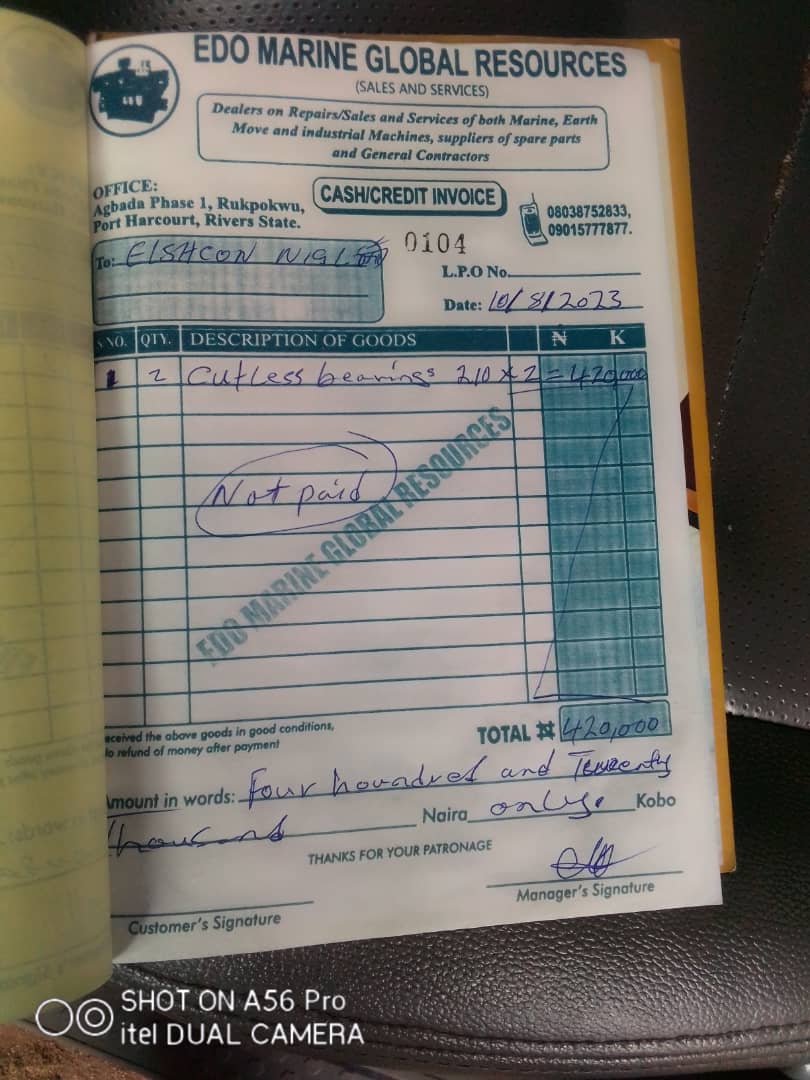 EDO MARINE GLOBAL RESOURCES
(SALES AND SERVICES)
Dealers on Repairs/Sales and Services of both Marine, Earth
Move and industrial Machines, suppliers of spare parts
and General Contractors
OFFICE:
Agbada Phase 1, Rukpokwu,
Port Harcourt, Rivers State.
CASH/CREDIT INVOICE
08038752833,
09015777877.
0104
To: ELSHCON NIG LTD
L.P.O No.
Date: 10/8/2023
S/NO. QTY. DESCRIPTION OF GOODS ₦ K
1 2 Cutless bearings 210 x 2 = 420,000
Not paid
EDO MARINE GLOBAL RESOURCES
eceived the above goods in good conditions,
o refund of money after payment
TOTAL ₦ 420,000
Amount in words: Four houndred and Tewenty
thousand Naira only. Kobo
THANKS FOR YOUR PATRONAGE
Customer's Signature
Manager's Signature
SHOT ON A56 Pro
itel DUAL CAMERA